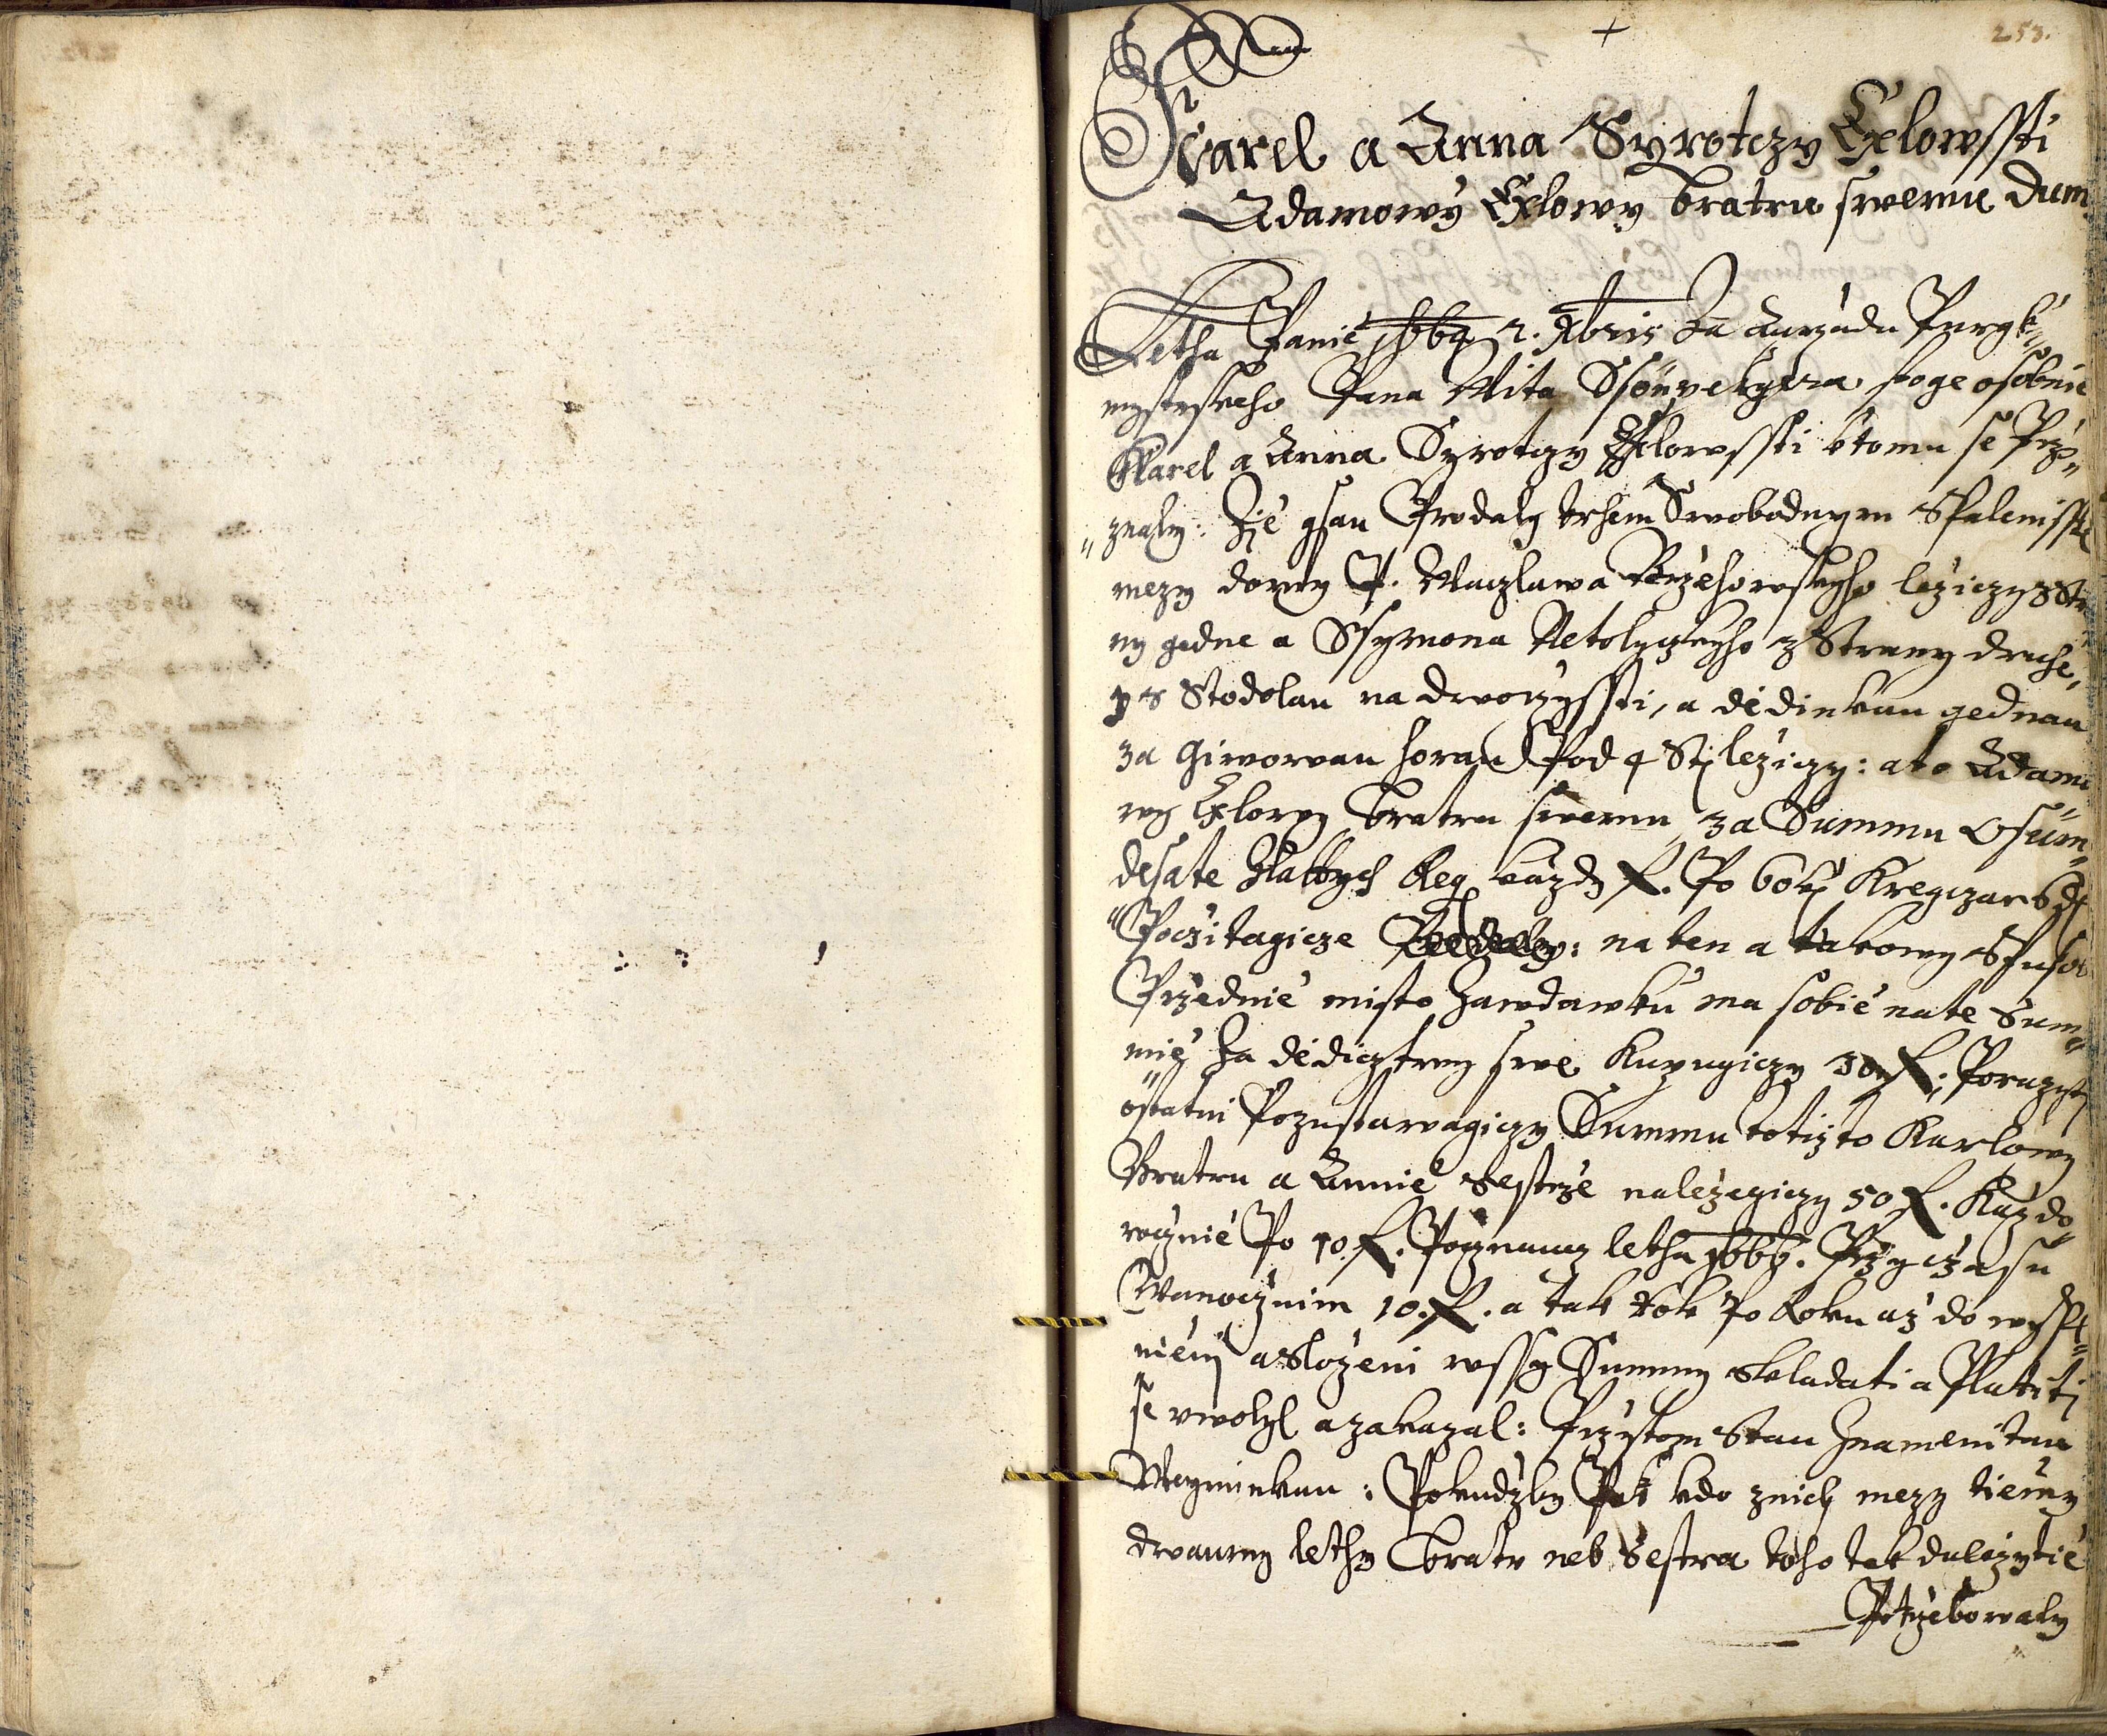 253.
Karel a Anna Syrotczy Exlowssti
Adamowy Exlowy bratru swemu dum
Letha Panie 1664 2. Xbris Za Aurzadu Purgk„
mystrskeho Pana Wita stoge osobnie
Karel a Anna Syrotczy Exlowssti k tomu se Przy„
„znaly: Zie gsau Prodaly trhem Swobodnym Spalenisstie
mezy domy P. Waczlawa Brzehowskyho lezyczy z Stra
ny gedne a Ssymona Netolyczkyho z Strany druhe,
y s Stodolau na dwoczyssti, a dedinkau gednau
za Giwowau horau Pod 4 Sti lezyczy: a to Adamo
wy Exlowy bratru swemu, za Summu Osum„
desate Zlattych Reg kazdy f. Po 60ti Kregczarzych
„Poczitagicze : na ten a takowy Spusob
Przednie misto Zawdawku ma sobie na te Sum„
mie Za dedicztwy swe Kupugiczy 30 f: Porazyti
ostatni Pozustawagiczy Summu totizto Karlowy
Bratru a Annie Sestrze nalezegiczy 50 f. Kazdo„
rocznie Po 10 f. Pocznaucz letha 1666. Przy czasu
Wanocznim 10. f. a tak Rok Po Roku az do wypl„
nieni a Slozeni wssy Summy Skladati a Platiti
se uwolyl a zakazal: Przystom Stau Znamenitau
Weyminkau: Pokudzby Pak kdo znich mezy tiemy
dwaumy lethy bratr neb Sestra toho tak dulezytie
Potrzebowaly